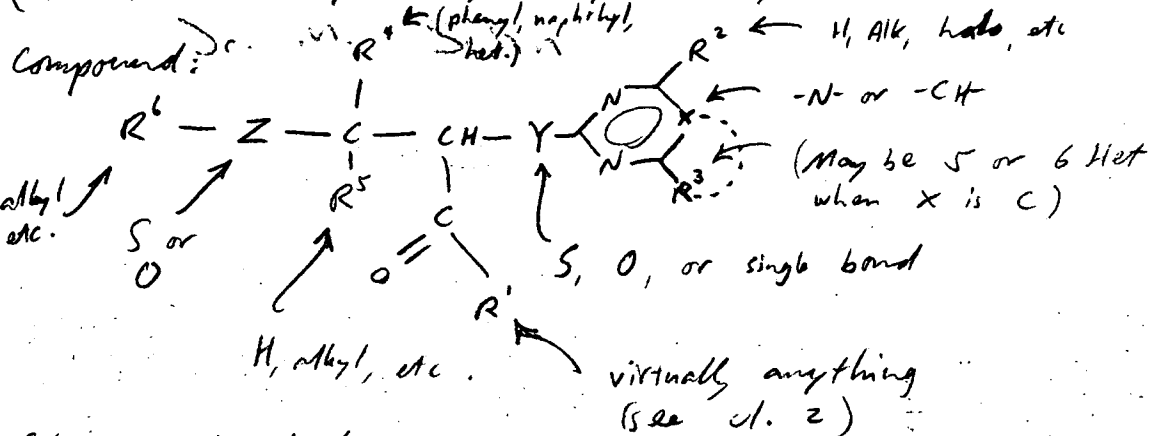 R⁴ ← (phenyl, naphthyl, het.)
R² ← H, Alk, halo, etc
Compound:
N X ← -N- or -CH-
R⁶ — Z — C — CH — Y
N R³
(May be 5 or 6 Het
when X is C)
alkyl
etc.
S or
O
R⁵
C
O
R¹
S, O, or single bond
H, alkyl, etc.
virtually anything
(see cl. 2)